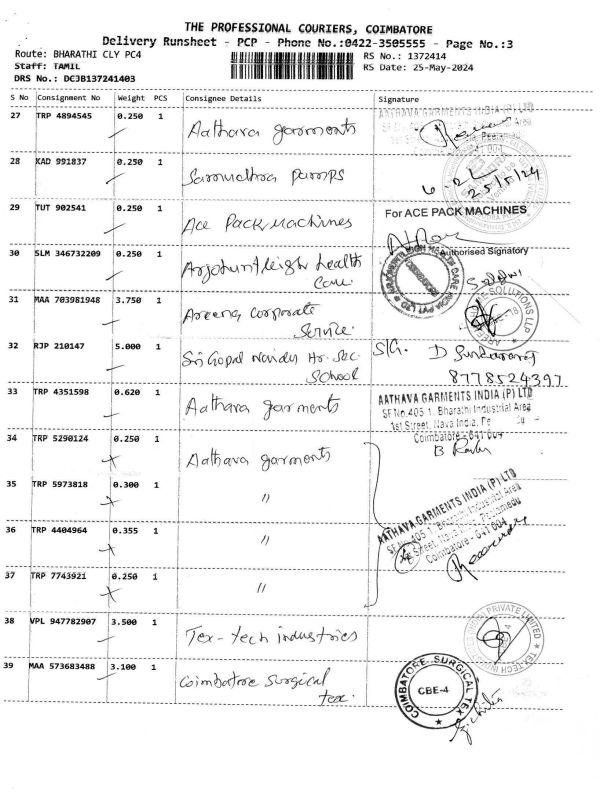 THE PROFESSIONAL COURIERS, COIMBATORE
Delivery Runsheet - PCP - Phone No.:0422-3505555 - Page No.:3
Route: BHARATHI CLY PC4
RS No.: 1372414
Staff: TAMIL
RS Date: 25-May-2024
DRS No.: DCJB137241403
S No Consignment No Weight PCS Consignee Details Signature
27 TRP 4894545 0.250 1 Aathava garments
AATHAVA GARMENTS INDIA (P) LTD
28 KAD 991837 0.250 1 Samudhra pumps
25/5/24
29 TUT 902541 0.250 1 Ace Pack Machines
For ACE PACK MACHINES
Authorised Signatory
30 SLM 346732209 0.250 1 health
care
31 MAA 703981948 3.750 1 Areena corporate
Service
32 RJP 210147 5.000 1 Sri Gopal Naidu Hr. Sec.
School
8778524397
33 TRP 4351598 0.620 1 Aathava garments
AATHAVA GARMENTS INDIA (P) LTD
SF No.405 1. Bharathi Industrial Area
1st Street, Nava India,
Coimbatore - 641 004
34 TRP 5290124 0.250 1 Aathava garments
35 TRP 5973818 0.300 1 "
AATHAVA GARMENTS INDIA (P) LTD
SF No.405 1. Bharathi Industrial Area
Coimbatore - 641 004
36 TRP 4404964 0.355 1 "
37 TRP 7743921 0.250 1 "
38 VPL 947782907 3.500 1 Tex-tech industries
39 MAA 573683488 3.100 1 Coimbatore Surgical
tex.
COIMBATORE SURGICAL TEX
CBE-4